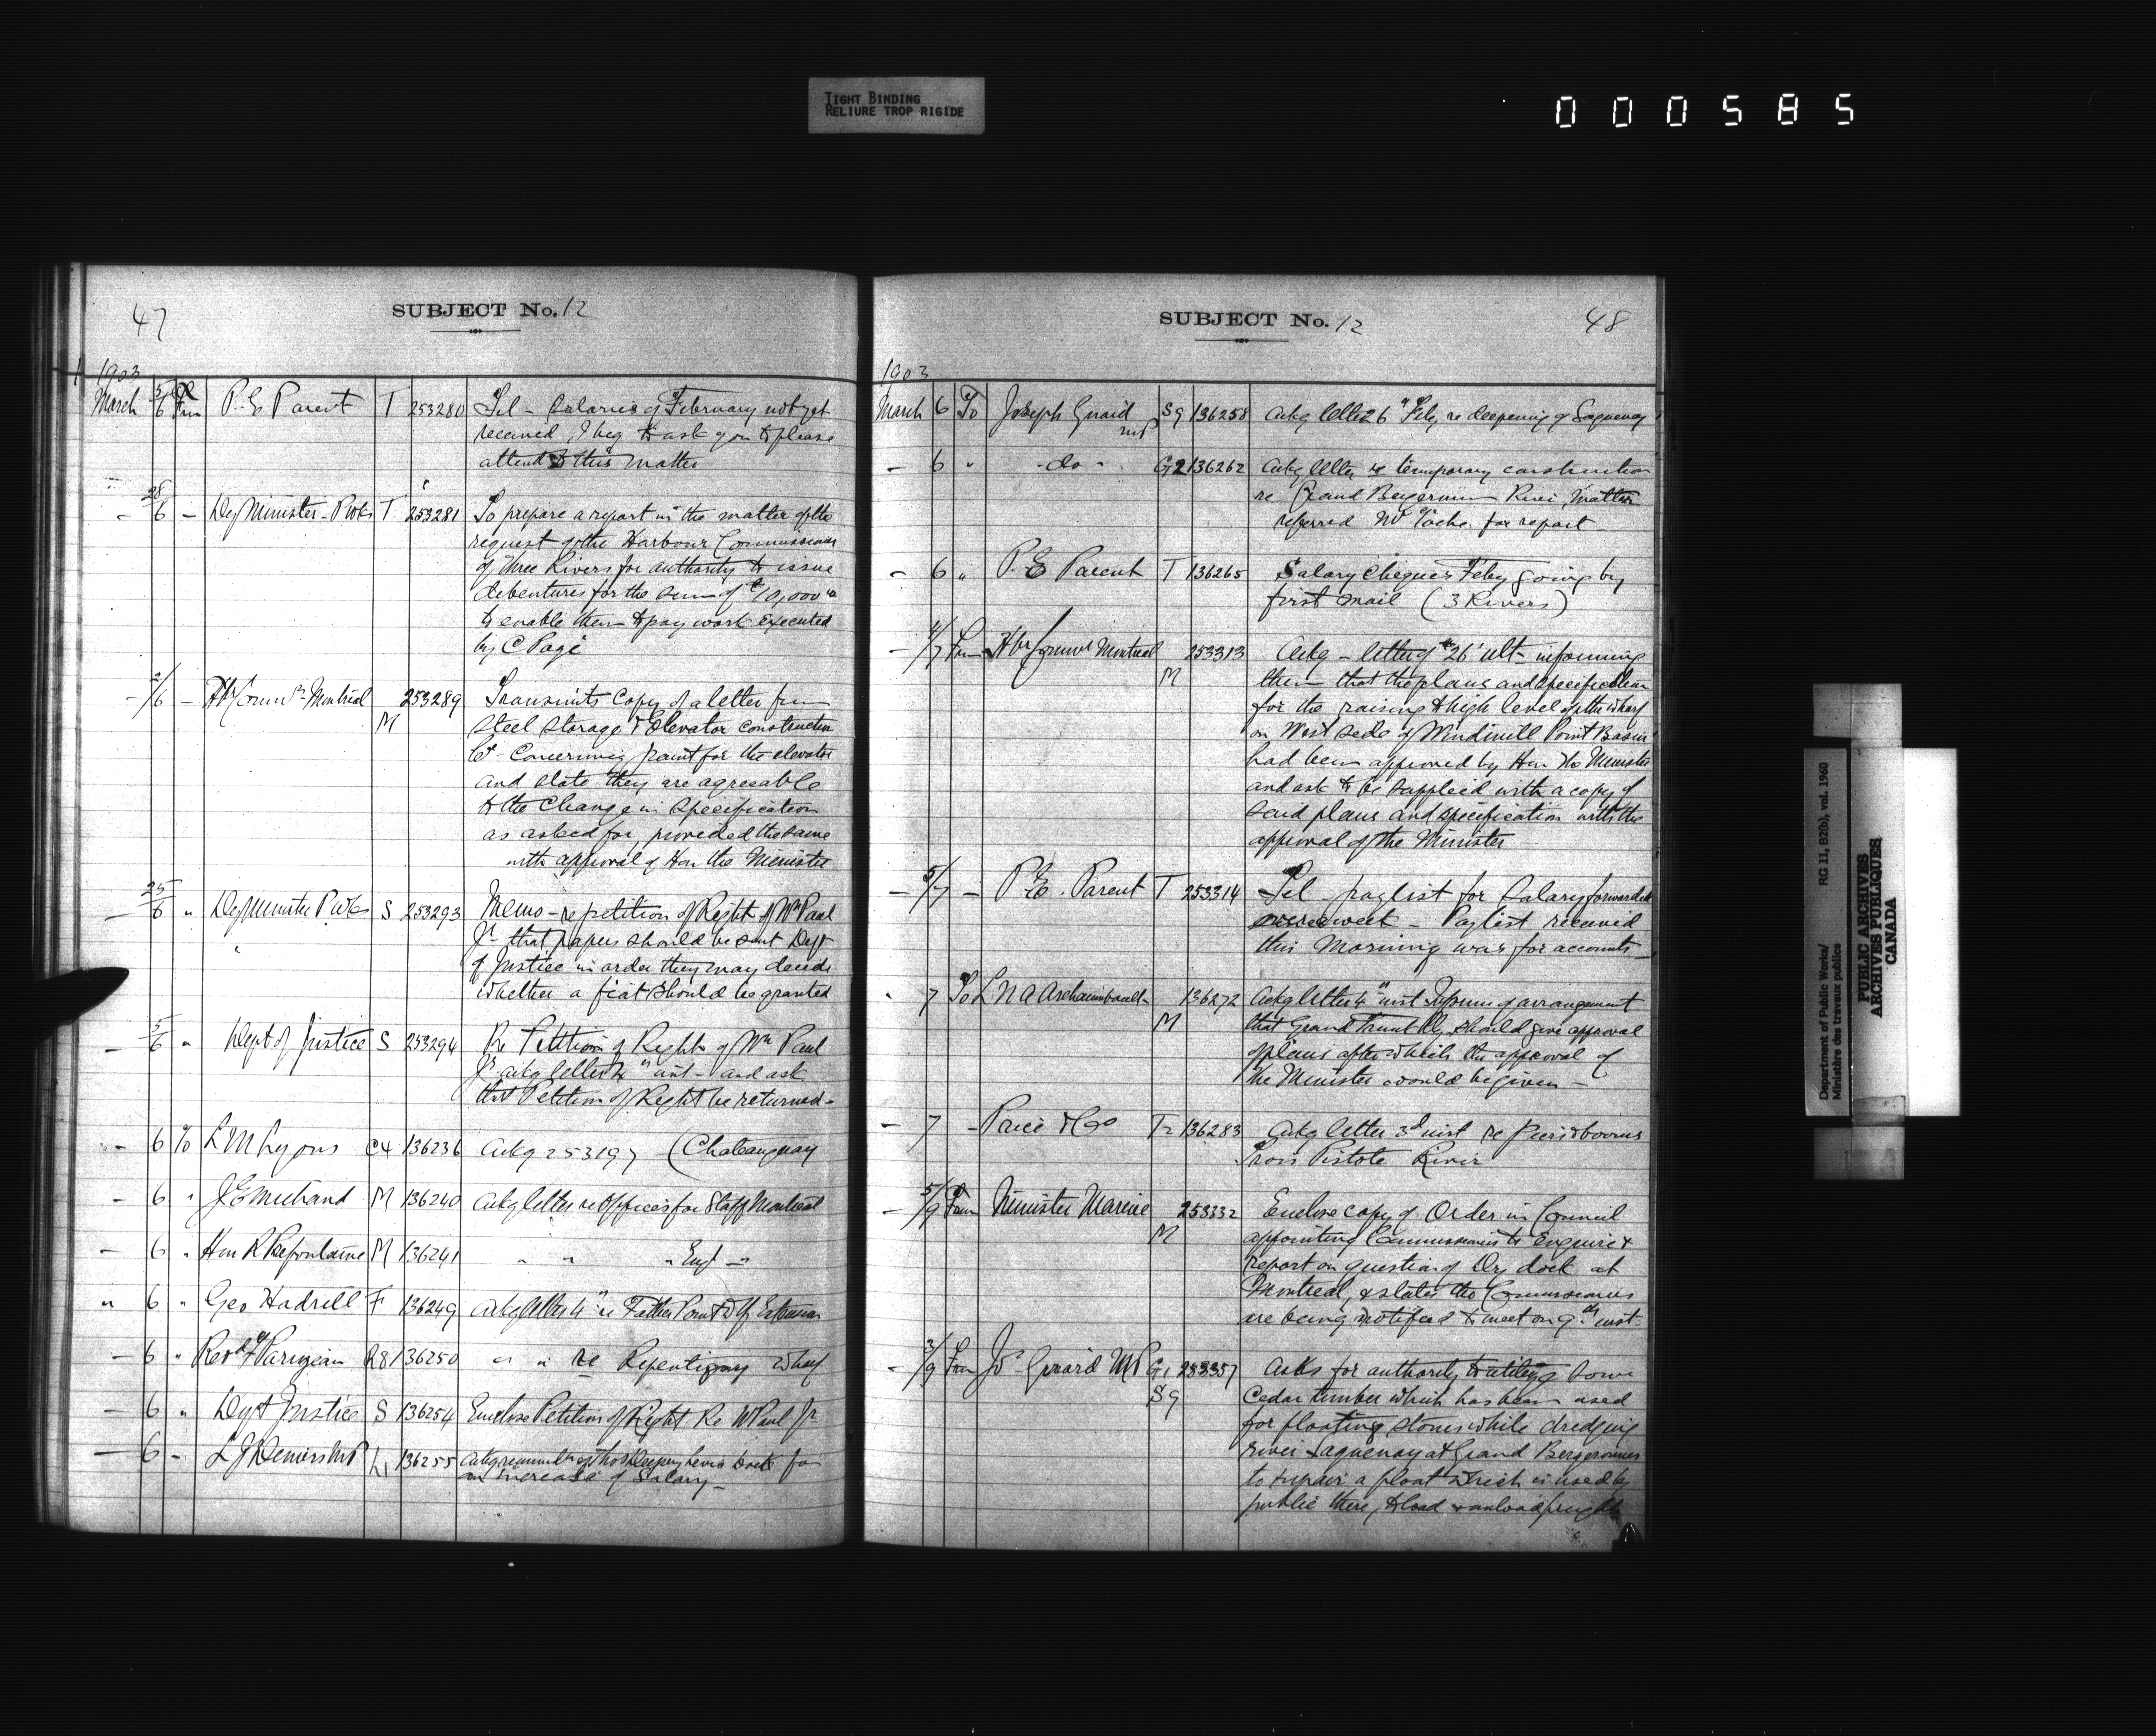 TIGHT BINDING
RELIURE TROP RIGIDE
000585
47
SUBJECT No. 12
1903
March 5/6 Frm P. E Parent T 253280 Tel - Salaries of February not yet
received, I beg to ask you to please
attend to this matter
28/6 - Dy Minister P Wks T 253281 To prepare a report in the matter of the
request of the Harbour Commissioners
of Three Rivers for authority to issue
debentures for the sum of $10,000
to enable them to pay work executed
by C Page
- 2/6 - Hbr Commrs Montreal 253289 Transmits Copy of a letter from
M Steel Storage & Elevator construction
Co - Concerning paint for the elevator
and state they are agreable
to the Change in Specification
as asked for, provided the same
with approval of Hon the Minister
- 25/6 " Dy Minister P Wks S 253293 Memo - re petition of Right of Wm Paul
" Jr - that papers should be sent Dept
of Justice in order they may decide
whether a fiat should be granted
- 5/6 " Dept of Justice S 253294 Re Petition of Right of Wm Paul
Jr ackg letter 4" inst - and ask
that Petition of Right be returned -
- 6 To L M Lyons C4 136236 Ackg 253197 (Chateauguay
- 6 " J E 136240 M Ackg letter re Offices for Staff Montreal
- 6 " Hon R Prefontaine M 136241 " " " Engr "
" 6 " Geo Hadrill F 136249 Ackg letter 4" re Father Point Wf Extension
- 6 " Revd F Parizeau R8 136250 " " re Repentigny Wharf
- 6 " Dept Justice S 136254 Enclose Petition of Right Re W Paul Jr
- 6 - L J Demers MP L1 136255 Levis Dock for
an increase of Salary -
SUBJECT No. 12
48
1903
March 6 To Joseph Girard S9 136258 Ackg letter 26" Feby re deepening of Saguenay
MP
- 6 " - do - G2 136262 Ackg letter re temporary construction
re Grand Bergeronnes River, Matter
referred Mr Tache for report -
- 6 " P. E Parent T 136265 Salary Cheques Feby going by
first mail (3 Rivers)
- 4/7 Frm Hbr Commrs Montreal 253313 Ackg - letter of 26' ult - informing
M them that the plans and specification
for the raising to high level of the wharf
on West side of Windmill Point Basin
had been approved by Hon the Minister
and ask to be supplied with a copy of
said plans and specification with the
approval of the Minister
- 5/7 - P. E. Parent T 253314 Tel - paylist for Salary forwarded
week - Paylist received
this Morning was for accounts -
" 7 To L N A Archambault 136272 Ackg letter 4" inst of arrangement
M that Grand Trunk Ry should give approval
of plans after which the approval of
the Minister would be given -
- 7 - Price & Co T2 136283 Ackg letter 3d inst re piers & booms
Trois Pistole River
- 5/9 Frm Minister Marine 253332 Enclose copy of Order in Council
M appointing Commissioners to Enquire &
report on question of Dry dock at
Montreal, & states the Commissioners
are being notified to meet on 9th inst -
- 3/9 Frm Jos Girard MP G1 253357 Asks for authority to utilize some
S9 Cedar timber which has been used
for floating stones while dredging
river Saguenay at Grand Bergeronnes
to repair a float which is used by
public there, to load & unload freight
Department of Public Works/ RG 11, B2(b), vol. 1960
Ministère des travaux publics
PUBLIC ARCHIVES
ARCHIVES PUBLIQUES
CANADA